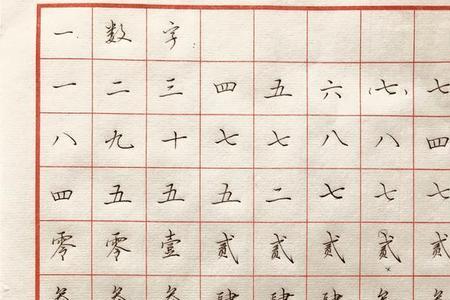 一数字
一二三四五六(七)七
八九十七七八八四
四五五五二七七七
零零壹贰贰贰贰贰